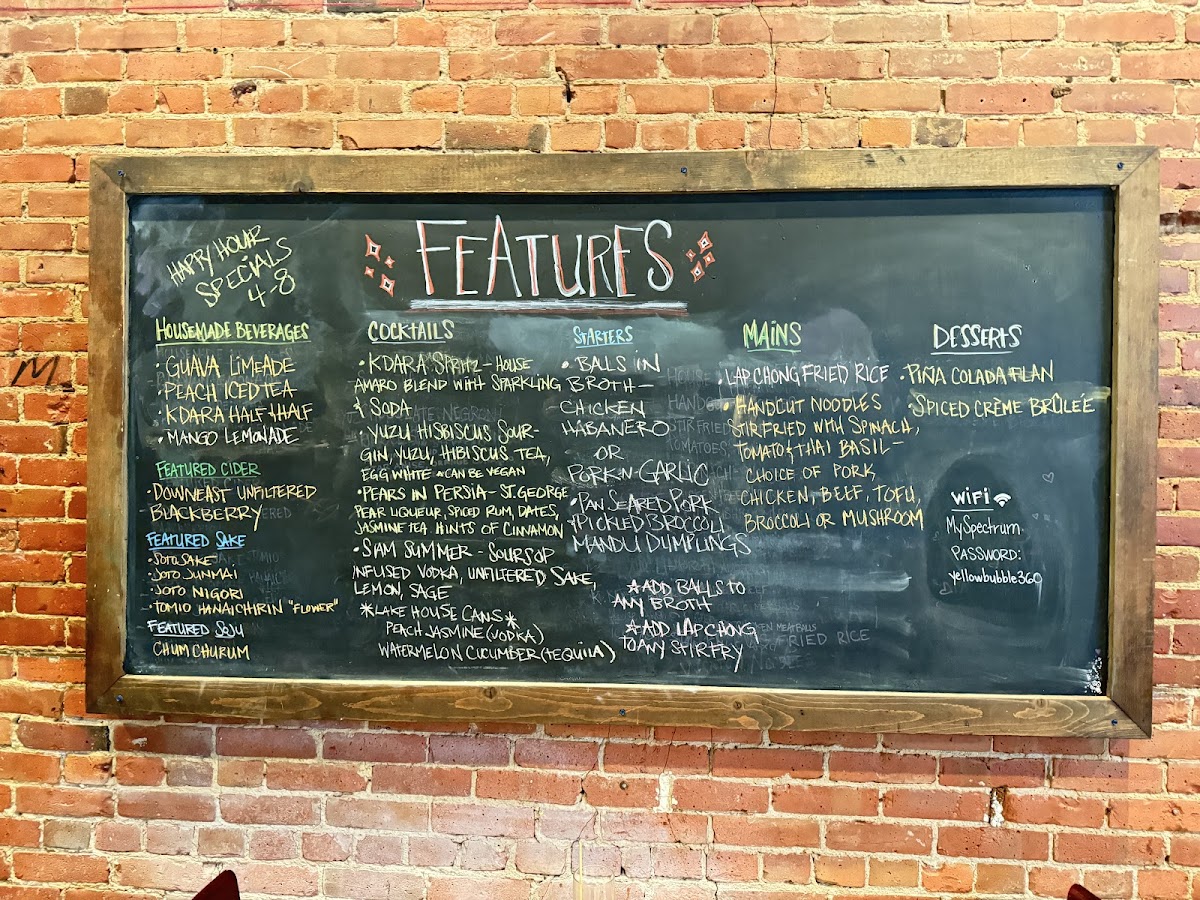 FEATURES
HAPPY HOUR
SPECIALS
4-8
HOUSEMADE BEVERAGES
• GUAVA LIMEADE
• PEACH ICED TEA
• KDARA HALF & HALF
• MANGO LEMONADE
FEATURED CIDER
• DOWNEAST UNFILTERED
BLACKBERRY
FEATURED SAKE
• SOTO SAKE
• JOTO JUNMAI
• JOTO NIGORI
• TOMIO HANAICHIRIN "FLOWER"
FEATURED SOJU
CHUM CHURUM
COCKTAILS
• KDARA SPRITZ - HOUSE
AMARO BLEND WITH SPARKLING
& SODA
• YUZU HISBISCUS SOUR -
GIN, YUZU, HIBISCUS TEA,
EGG WHITE * CAN BE VEGAN
• PEARS IN PERSIA - ST. GEORGE
PEAR LIQUEUR, SPICED RUM, DATES,
JASMINE TEA. HINTS OF CINNAMON
• SIAM SUMMER - SOURSOP
INFUSED VODKA, UNFILTERED SAKE,
LEMON, SAGE
*LAKE HOUSE CANS*
PEACH JASMINE (VODKA)
WATERMELON CUCUMBER (TEQUILA)
STARTERS
• BALLS IN
BROTH -
CHICKEN
HABANERO
OR
PORK-N-GARLIC
• PAN SEARED PORK
PICKLED BROCCOLI
MANDU DUMPLINGS
*ADD BALLS TO
ANY BROTH
*ADD LAP CHONG
TO ANY STIR FRY
MAINS
• LAP CHONG FRIED RICE
• HANDCUT NOODLES
STIRFRIED WITH SPINACH,
TOMATO & THAI BASIL -
CHOICE OF PORK,
CHICKEN, BEEF, TOFU,
BROCCOLI OR MUSHROOM
DESSERTS
• PIÑA COLADA FLAN
• SPICED CRÈME BRÛLÉE
WiFi
MySpectrum
PASSWORD:
yellowbubble369
M